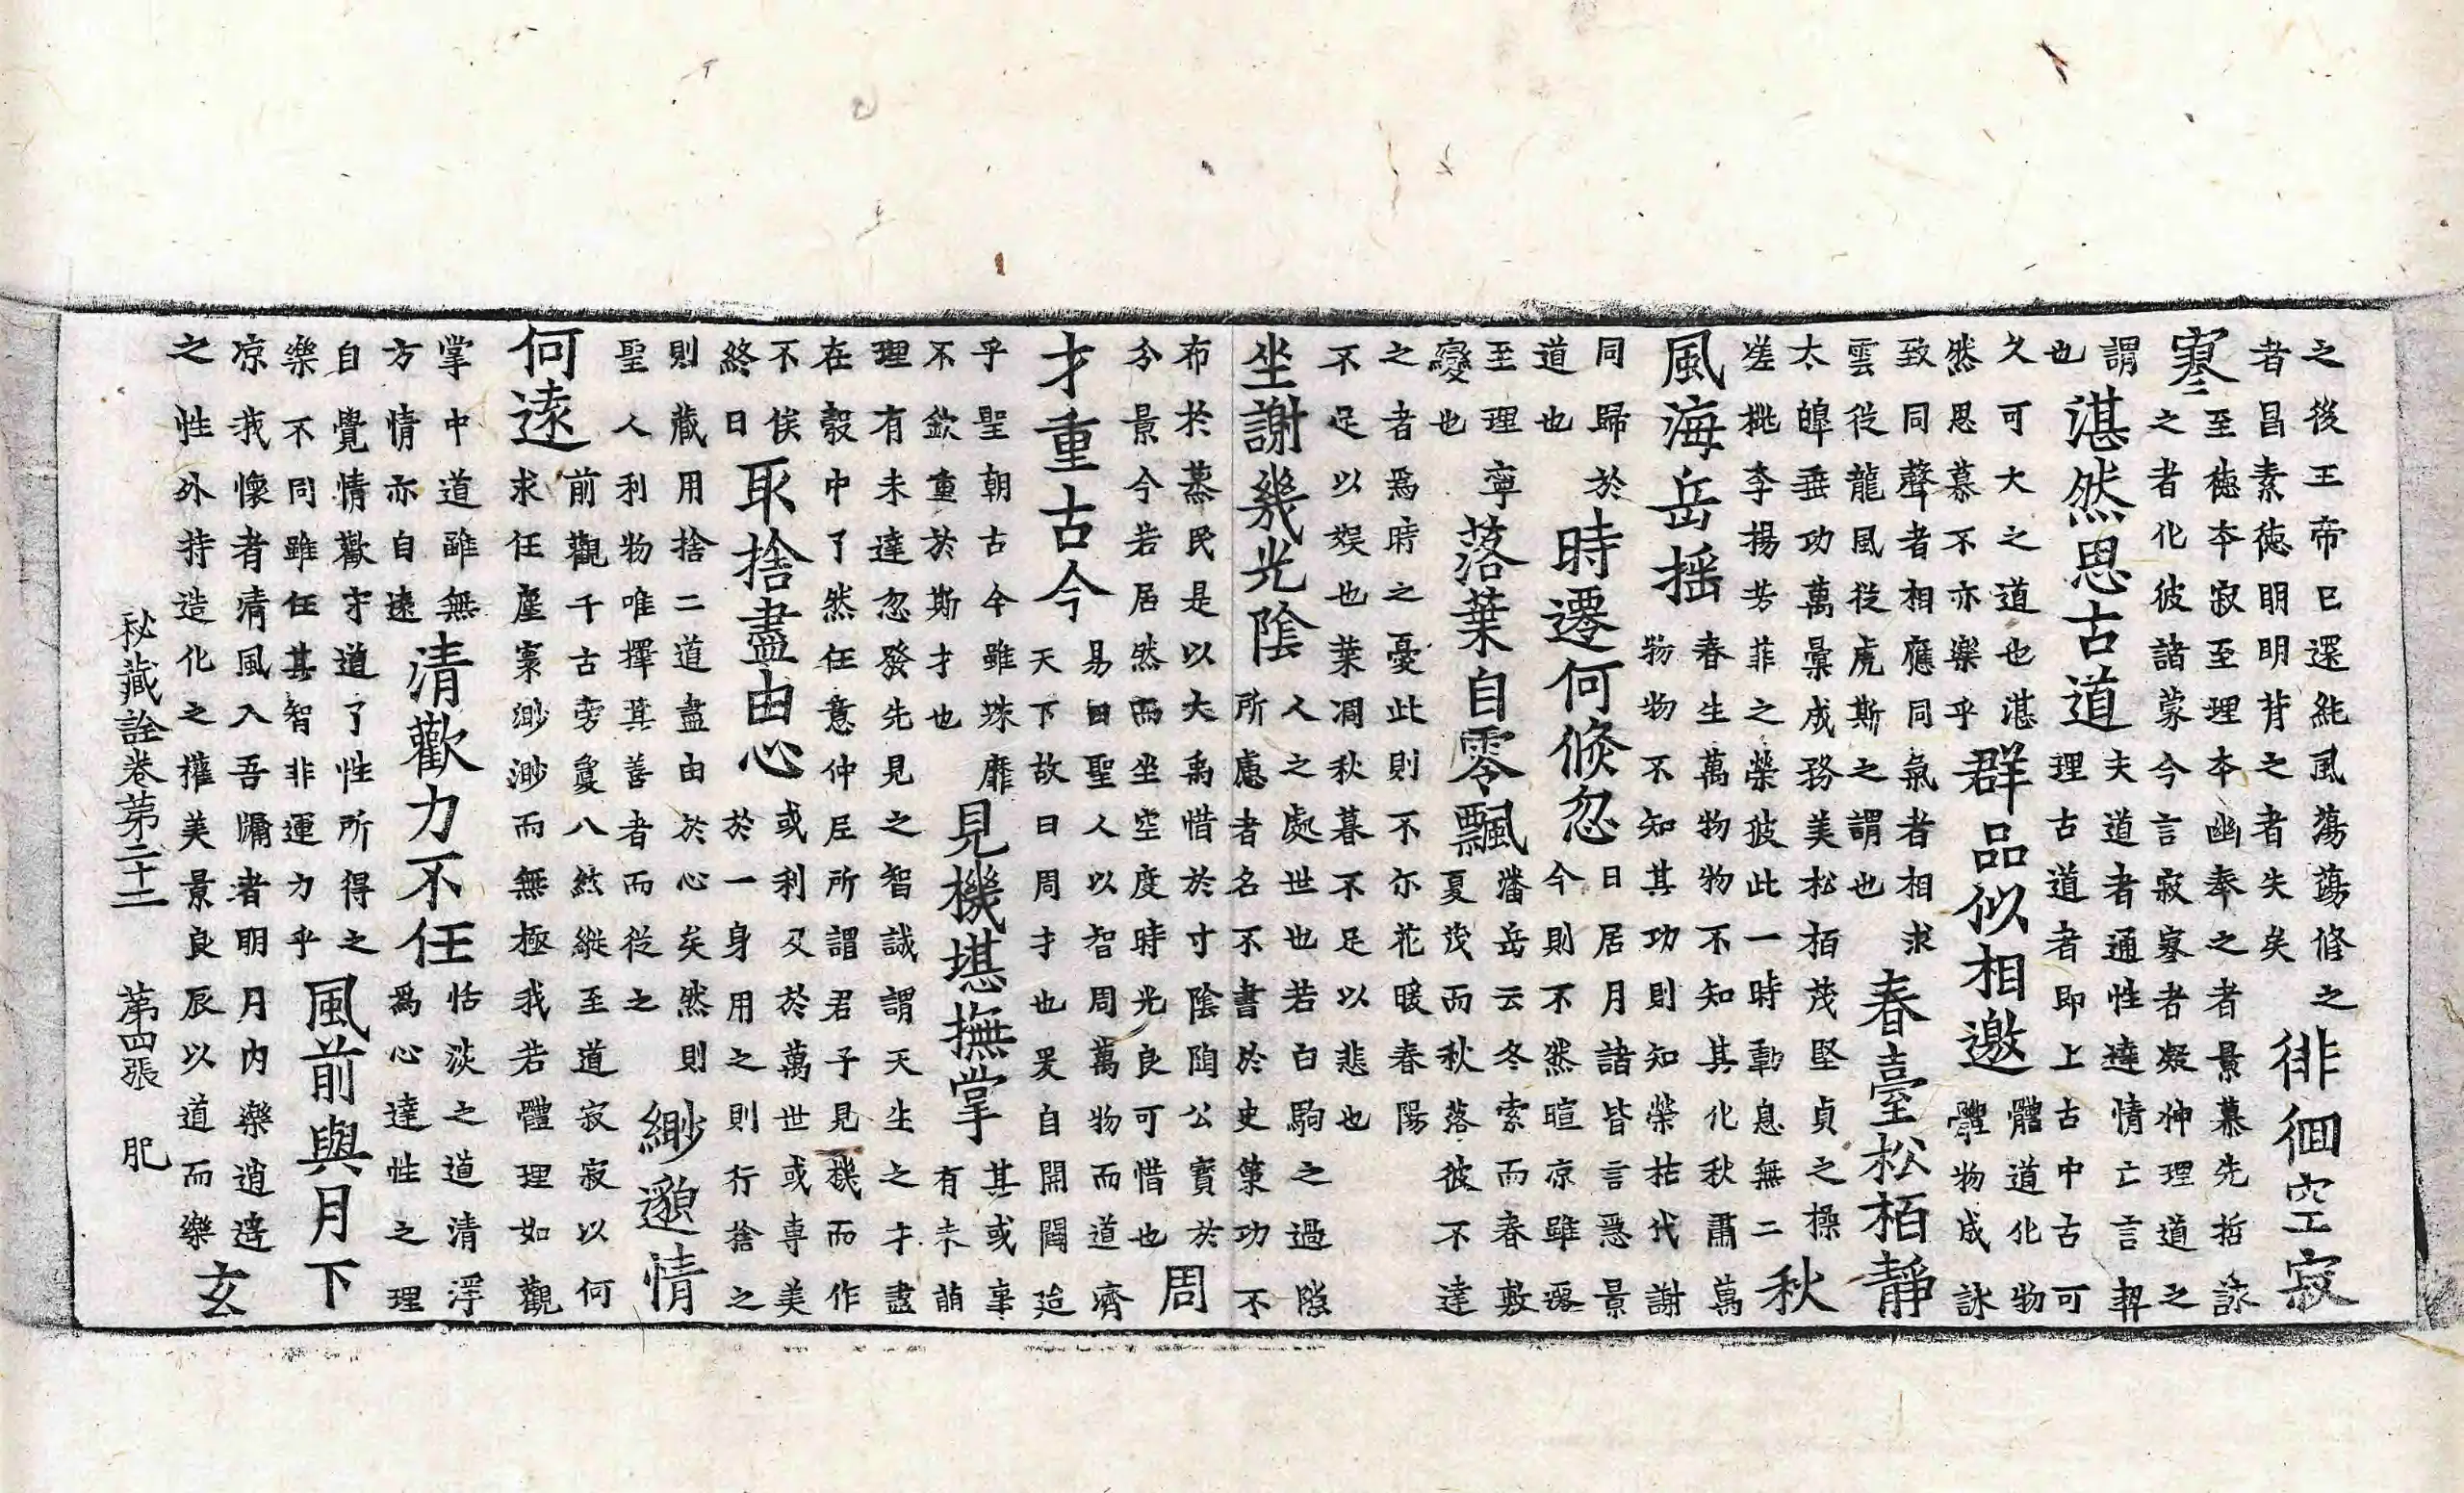 之後王帝已還純風蕩蕩修之
者昌素德明明背之者失矣
徘徊空寂
寥
至德夲寂至理夲幽奉之者景慕先哲詠
之者化彼諸蒙今言寂寥者凝神理道之
謂
也
湛然思古道
夫道者通性達情亡言契
理古道者即上古中古可
久可大之道也湛
然思慕不亦樂乎
群品似相邀
體道化物
體物成詠
致同聲者相應同氣者相求
雲從龍風從虎斯之謂也
春臺松栢靜
太皥垂功萬彙成務美松栢茂堅貞之操
嗟桃李揚芳菲之榮彼此一時動息無二
秋
風海岳摇
春生萬物物不知其化秋肅萬
物物不知其功則知榮枯代謝
同歸於
道也
時遷何倐忽
日居月諸皆言惡景
今則不然暄凉雖
至理寧
變也
落葉自零飄
潘岳云冬索而春敷
夏茂而秋落彼不達
之者爲時之憂此則不尓花暖春陽
不足以娱也葉凋秋暮不足以悲也
坐謝幾光陰
人之處世也若白駒之過隙
所慮者名不書於史筞功不
布於蒸民是以大禹惜於寸陰陶公寳於
分景今若居然而坐空度時光良可惜也
周
才重古今
易曰聖人以智周萬物而道濟
天下故曰周才也爰自開闢迨
乎聖朝古今雖殊靡
不欽重於斯才也
見機堪撫掌
其或事
有未萌
理有未達忽發先見之智誠謂天生之才盡
在彀中了然任意仲尼所謂君子見機而作
不俟
終日
取捨盡由心
或利及於萬世或専美
於一身用之則行捨之
則藏用捨二道盡由於心矣然則
聖人利物唯擇其善者而從之
緲邈情
何遠
前觀千古旁敻八紘縱至道寂寂以何
求任塵寰渺渺而無極我若體理如觀
掌中道雖無
方情亦自遠
清歡力不任
恬淡之道清淨
爲心達性之理
自覺情歡守道了性所得之
樂不同雖任其智非運力乎
風前與月下
凉我懷者清風入吾牖者明月内樂逍遥
之性外持造化之權美景良辰以道而樂
玄
秘藏詮卷第二十二　第四張　肥